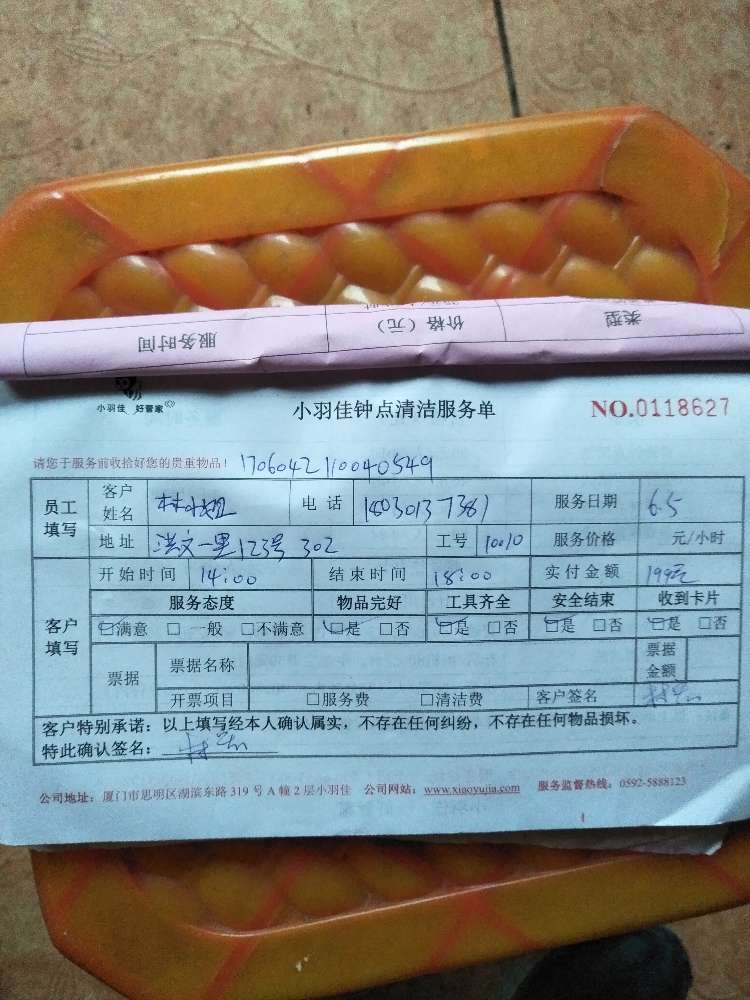 类型 价格（元） 服务时间
小羽佳 好管家
小羽佳钟点清洁服务单 NO.0118627
请您于服务前收拾好您的贵重物品！ 1706042110040549
员工填写 客户姓名 林小姐 电话 18030137381 服务日期 6.5
地址 洪文一里123号 302 工号 10010 服务价格 元/小时
客户填写 开始时间 14:00 结束时间 18:00 实付金额 199元
服务态度 物品完好 工具齐全 安全结束 收到卡片
☑满意 □一般 □不满意 ☑是 □否 ☑是 □否 ☑是 □否 ☑是 □否
票据 票据名称 票据金额
开票项目 □服务费 □清洁费 客户签名
客户特别承诺：以上填写经本人确认属实，不存在任何纠纷，不存在任何物品损坏。
特此确认签名：
公司地址：厦门市思明区湖滨东路 319 号 A 幢 2 层小羽佳 公司网站：www.xiaoyujia.com 服务监督热线：0592-5888123